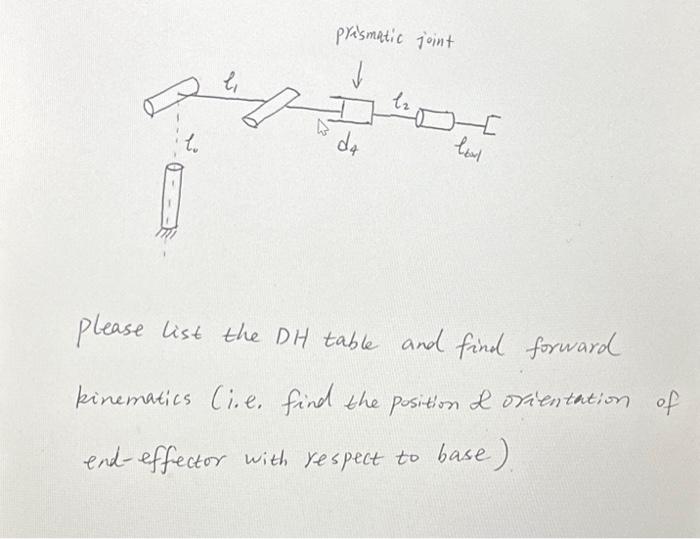 prismatic joint
l₁
l₂
l₀
d₄
l_tool
please list the DH table and find forward
kinematics (i.e. find the position & orientation of
end-effector with respect to base)